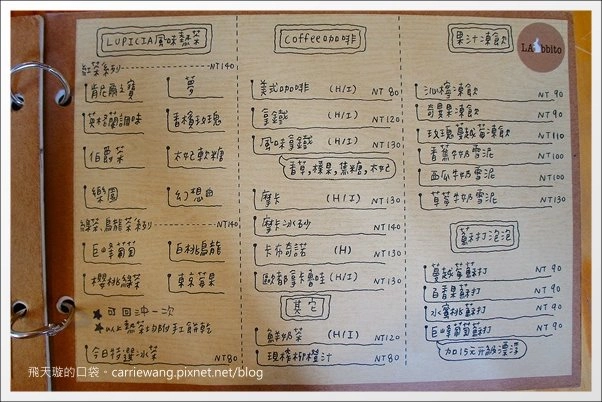 LUPICIA風味熱茶
紅茶系列 NT140
肯尼爾之寶 夢
英格蘭調味 香檳玫瑰
伯爵茶 太妃軟糖
樂園 幻想曲
綠茶烏龍茶系列 NT140
巨峰葡萄 白桃烏龍
櫻桃綠茶 東京蘋果
★可回沖一次
今日特選冰茶 NT80
Coffee咖啡
美式咖啡 (H/I) NT 80
拿鐵 (H/I) NT120
風味拿鐵 (H/I) NT130
香草,榛果,焦糖,太妃
摩卡 (H/I) NT130
摩卡冰砂 NT140
卡布奇諾 (H) NT130
歐蕾摩卡魯哇(H/I) NT130
其它
鮮奶茶 (H/I) NT120
現榨柳橙汁 NT80
果汁凍飲
沁檸凍飲 NT 90
奇異果凍飲 NT 90
玫瑰蔓越莓凍飲 NT110
香蕉牛奶雪泥 NT100
西瓜牛奶雪泥 NT100
草莓牛奶雪泥 NT100
蘇打泡泡
蔓越莓蘇打 NT 90
百香果蘇打 NT 90
水蜜桃蘇打 NT 90
巨峰葡萄蘇打 NT 90
加15元升級漂浮
飛天璇的口袋。carriewang.pixnet.net/blog